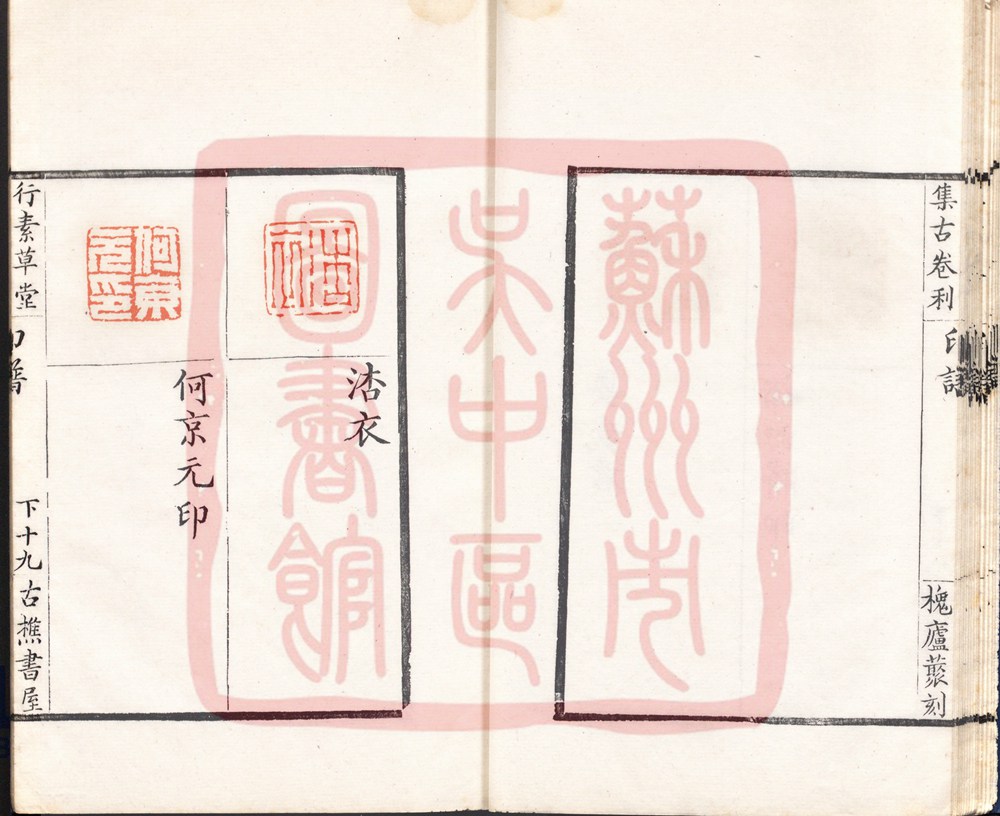 集古卷利
印
槐廬藂刻
蘇州市
吳中區
圖書館
衣
何京元印
何京元印
行素草堂
印譜
下十九古樵書屋